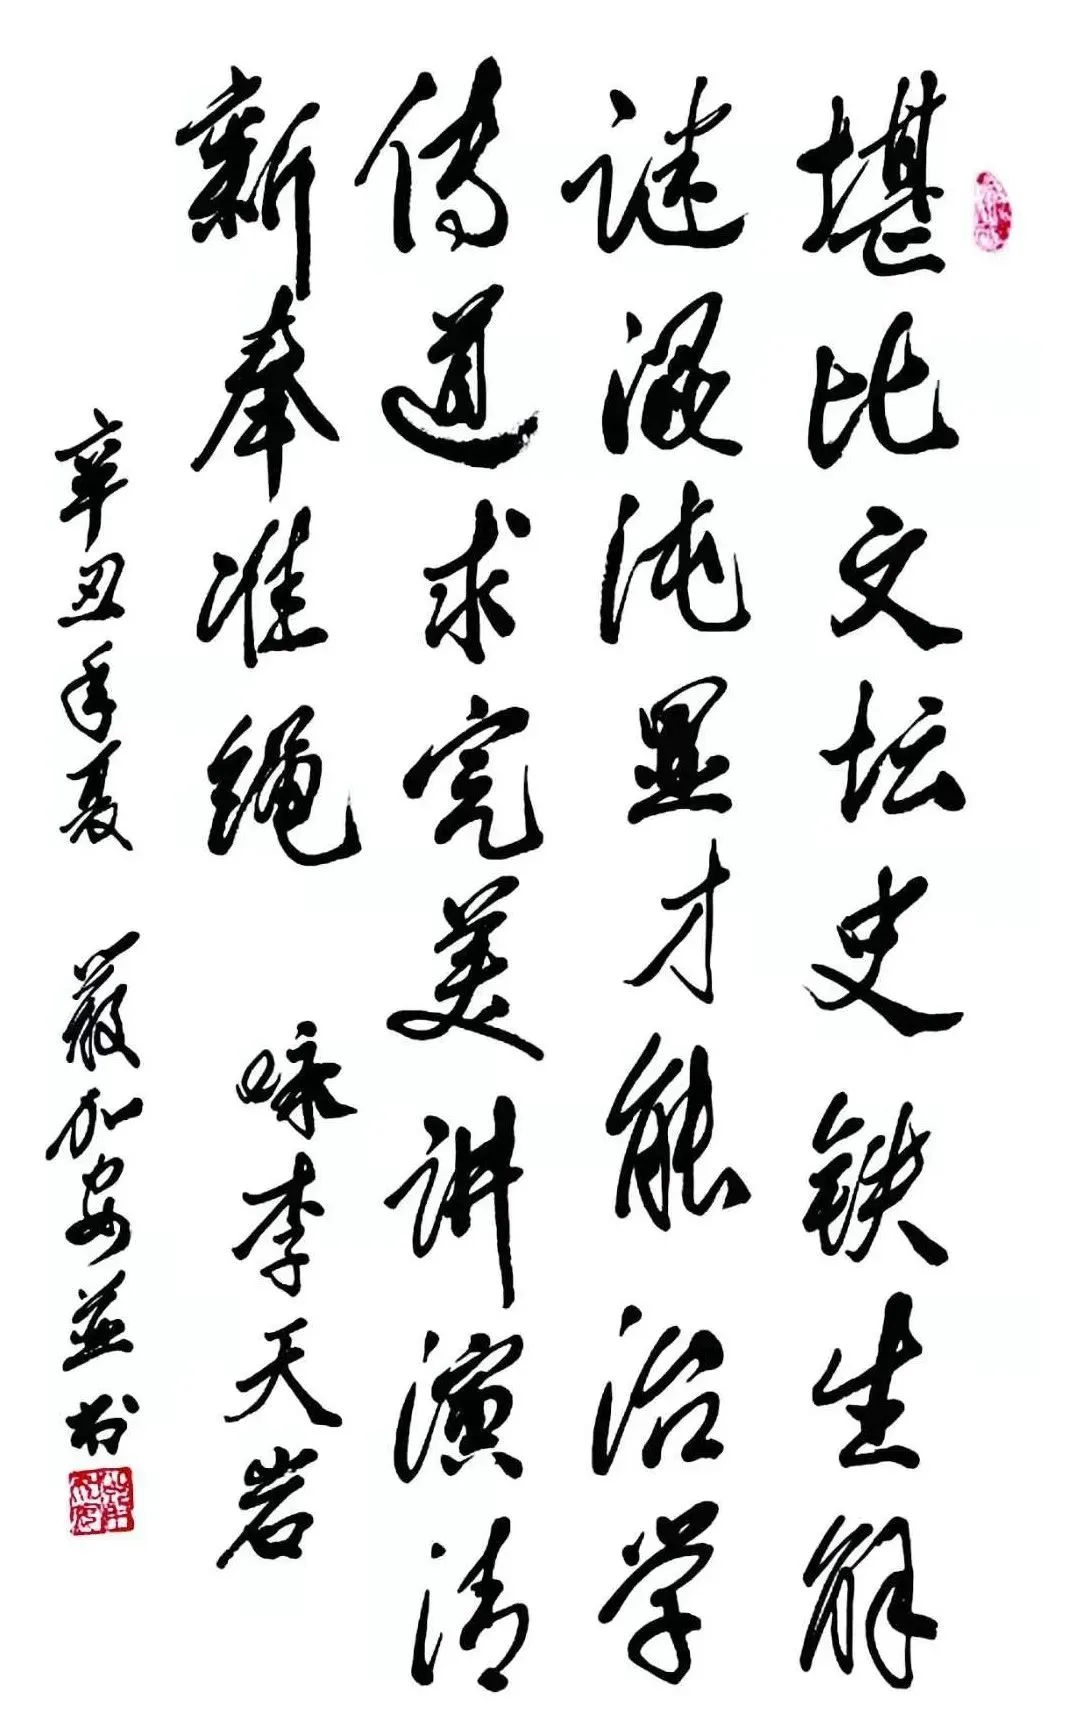 堪比文坛史铁生解
谜混沌显才能治学
传道求完美讲演清
新奉准绳 咏李天岩
辛丑年夏 嚴加安並书